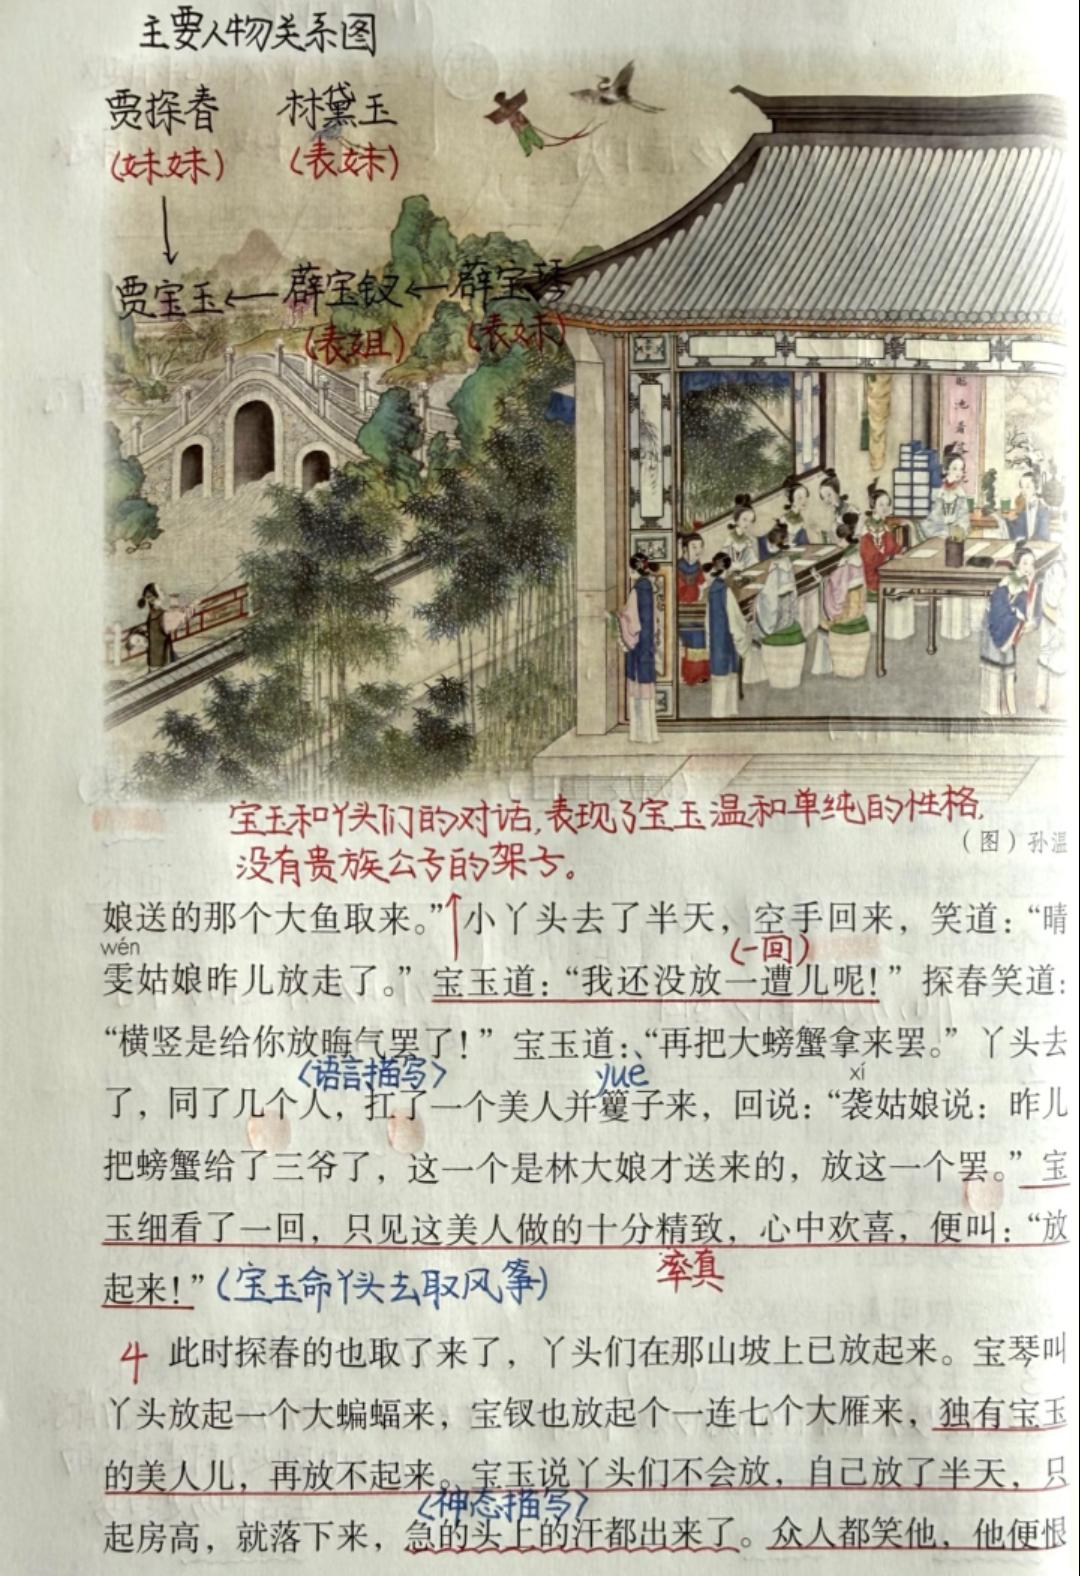 主要人物关系图
贾探春 林黛玉
黛
(妹妹) (表妹)
贾宝玉←薛宝钗←薛宝琴
(表姐) (表妹)
宝玉和丫头们的对话,表现了宝玉温和单纯的性格,
(图)孙温
没有贵族公子的架子。
娘送的那个大鱼取来。”小丫头去了半天，空手回来，笑道：“晴
wén (一回)
雯姑娘昨儿放走了。”宝玉道：“我还没放一遭儿呢！”探春笑道：
“横竖是给你放晦气罢了！”宝玉道：、“再把大螃蟹拿来罢。”丫头去
〈语言描写〉 yuè xí
了，同了几个人，扛了一个美人并籰子来，回说：“袭姑娘说：昨儿
把螃蟹给了三爷了，这一个是林大娘才送来的，放这一个罢。”宝
玉细看了一回，只见这美人做的十分精致，心中欢喜，便叫：“放
率真
起来！”(宝玉命丫头去取风筝)
4 此时探春的也取了来了，丫头们在那山坡上已放起来。宝琴叫
丫头放起一个大蝙蝠来，宝钗也放起个一连七个大雁来，独有宝玉
的美人儿，再放不起来。宝玉说丫头们不会放，自己放了半天，只
〈神态描写〉
起房高，就落下来，急的头上的汗都出来了。众人都笑他，他便恨